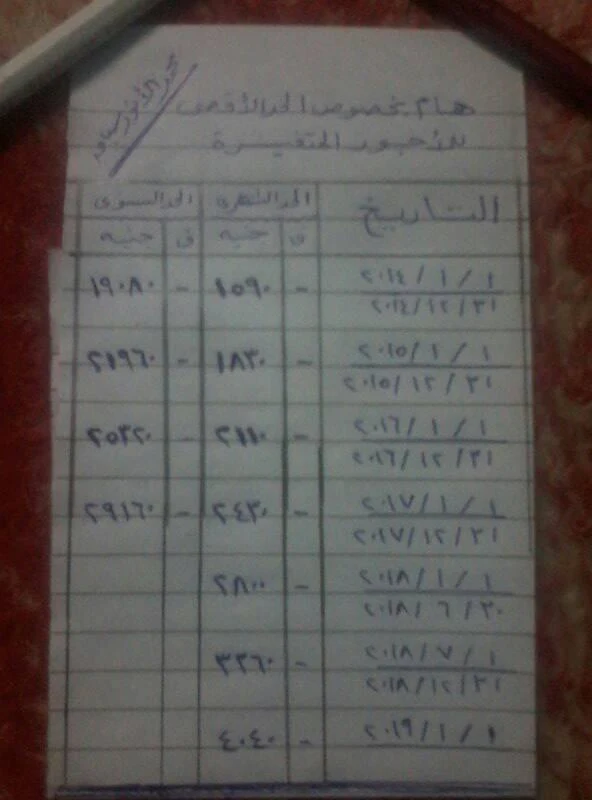 هام بخصوص الحد الأقصى
للأجور المتغيرة
التاريخ الحد الشهرى الحد السنوى
ق جنيه ق جنيه
٢٠١٤/١/١ - ١٥٩٠ - ١٩٠٨٠
٢٠١٤/١٢/٣١
٢٠١٥/١/١ - ١٨٣٠ - ٢١٩٦٠
٢٠١٥/١٢/٣١
٢٠١٦/١/١ - ٢١١٠ - ٢٥٣٢٠
٢٠١٦/١٢/٣١
٢٠١٧/١/١ - ٢٤٣٠ - ٢٩١٦٠
٢٠١٧/١٢/٣١
٢٠١٨/١/١ - ٢٨٠٠
٢٠١٨/٦/٣٠
٢٠١٨/٧/١ - ٣٣٦٠
٢٠١٨/١٢/٣١
٢٠١٩/١/١ - ٤٠٤٠